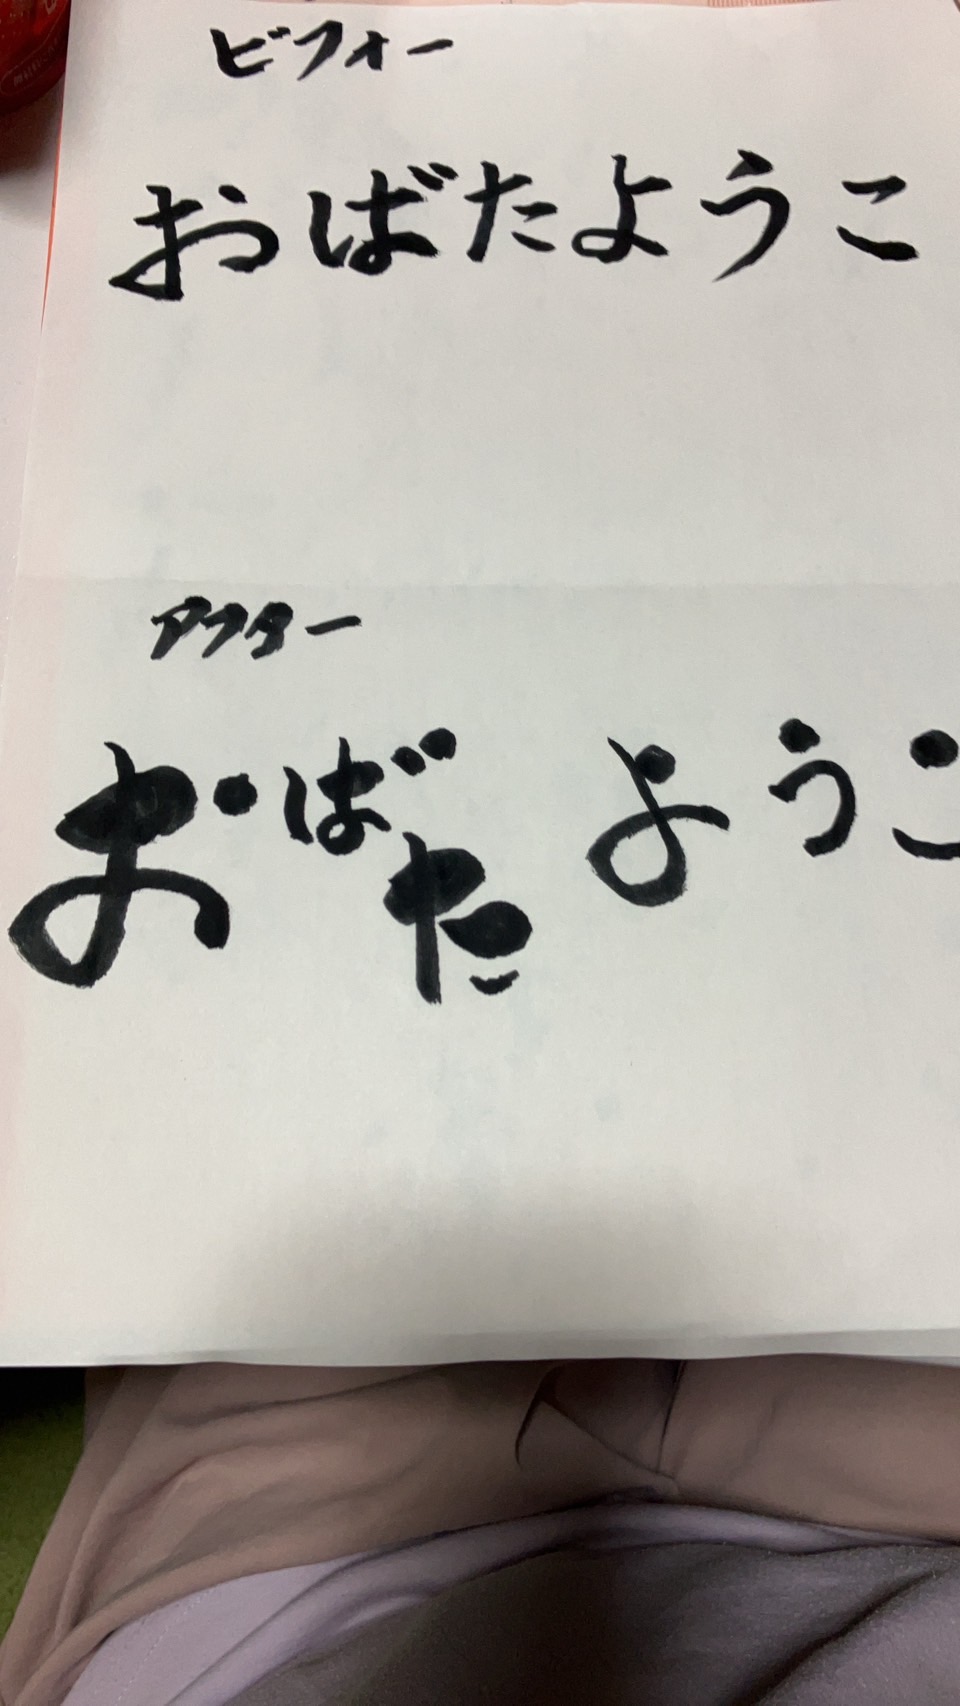 ビフォー
おばたようこ
アフター
おばたようこ